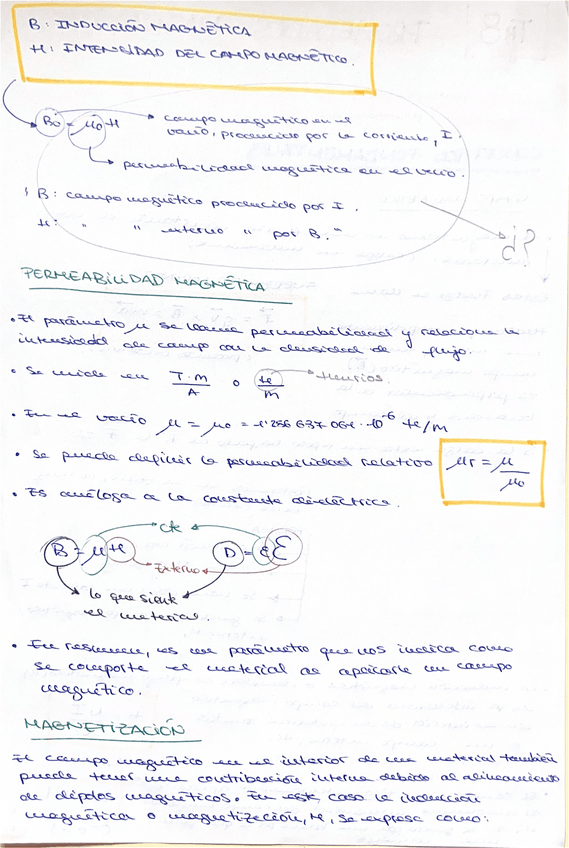 B: INDUCCIÓN MAGNÉTICA
H: INTENSIDAD DEL CAMPO MAGNÉTICO.
B₀ = μ₀ H → campo magnético en el
vacío, producido por la corriente, I.
→ permeabilidad magnética en el vacío.
B: campo magnético producido por I.
H: " " externo " por B."
PERMEABILIDAD MAGNÉTICA
• El parámetro μ se llama permeabilidad y relaciona la
intensidad de campo con la densidad de flujo.
• Se mide en T·m/A o He/m → Henrios.
• En el vacío μ = μ₀ = 1'256 637 061 · 10⁻⁶ He/M
• Se puede definir la permeabilidad relativa μr = μ/μ₀
• Es análoga a la constante dieléctrica.
Cte
B = μ H D = ε Ɛ
Externo
lo que siente
el material.
• En resumen, es un parámetro que nos indica como
se comporta el material al aplicarle un campo
magnético.
MAGNETIZACIÓN
El campo magnético en el interior de un material también
puede tener una contribución interna debido al alineamiento
de dipolos magnéticos. En este caso la inducción
magnética o magnetización, M, se expresa como: